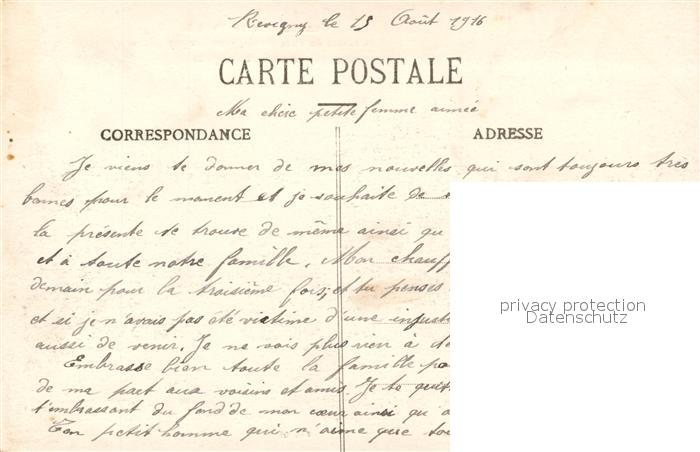 Revigny le 15 Août 1916
CARTE POSTALE
Ma chère petite femme aimée
CORRESPONDANCE
ADRESSE
Je viens te donner de mes nouvelles qui sont toujours très
bonnes pour le moment et je souhaite de
la présente te trouve de même ainsi qu
et à toute notre famille. Mon chauff
demain pour la troisième fois, et tu penses
et si je n'avais pas été victime d'une injust
aussi de venir. Je ne vois plus rien à de
Embrasse bien toute la famille po
de ma part aux voisins et amis. Je te quit
t'embrassant du fond de mon cœur ainsi qu'
Ton petit homme qui n'aime que to
privacy protection
Datenschutz